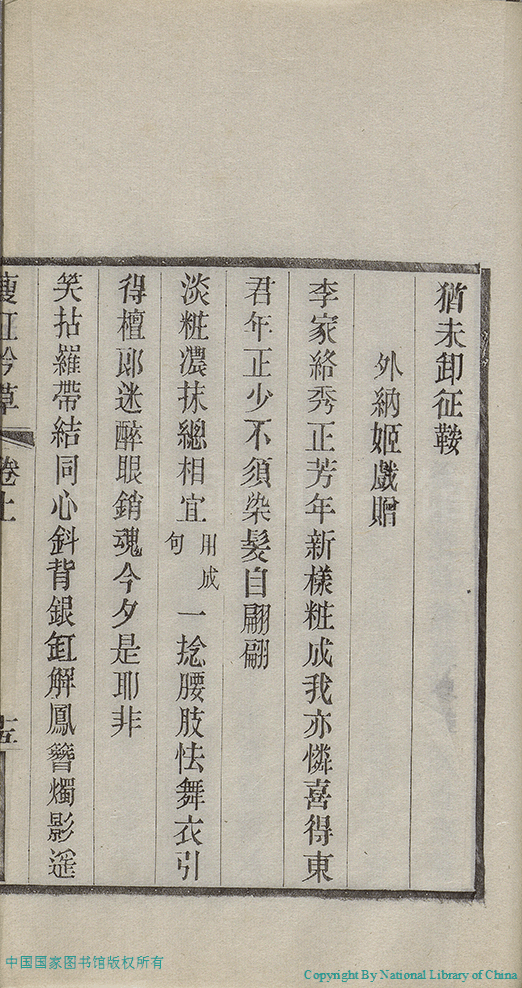 猶未卸征鞍
外納姬戲贈
李家絡秀正芳年新樣粧成我亦憐喜得東
君年正少不須染髮自翩翩
淡粧濃抹總相宜用成句一捻腰肢怯舞衣引
得檀郎迷醉眼銷魂今夕是耶非
笑拈羅帶結同心斜背銀缸解鳳簪燭影遥
瘦紅吟草 卷上 十五
中国国家图书馆版权所有
Copyright By National Library of China